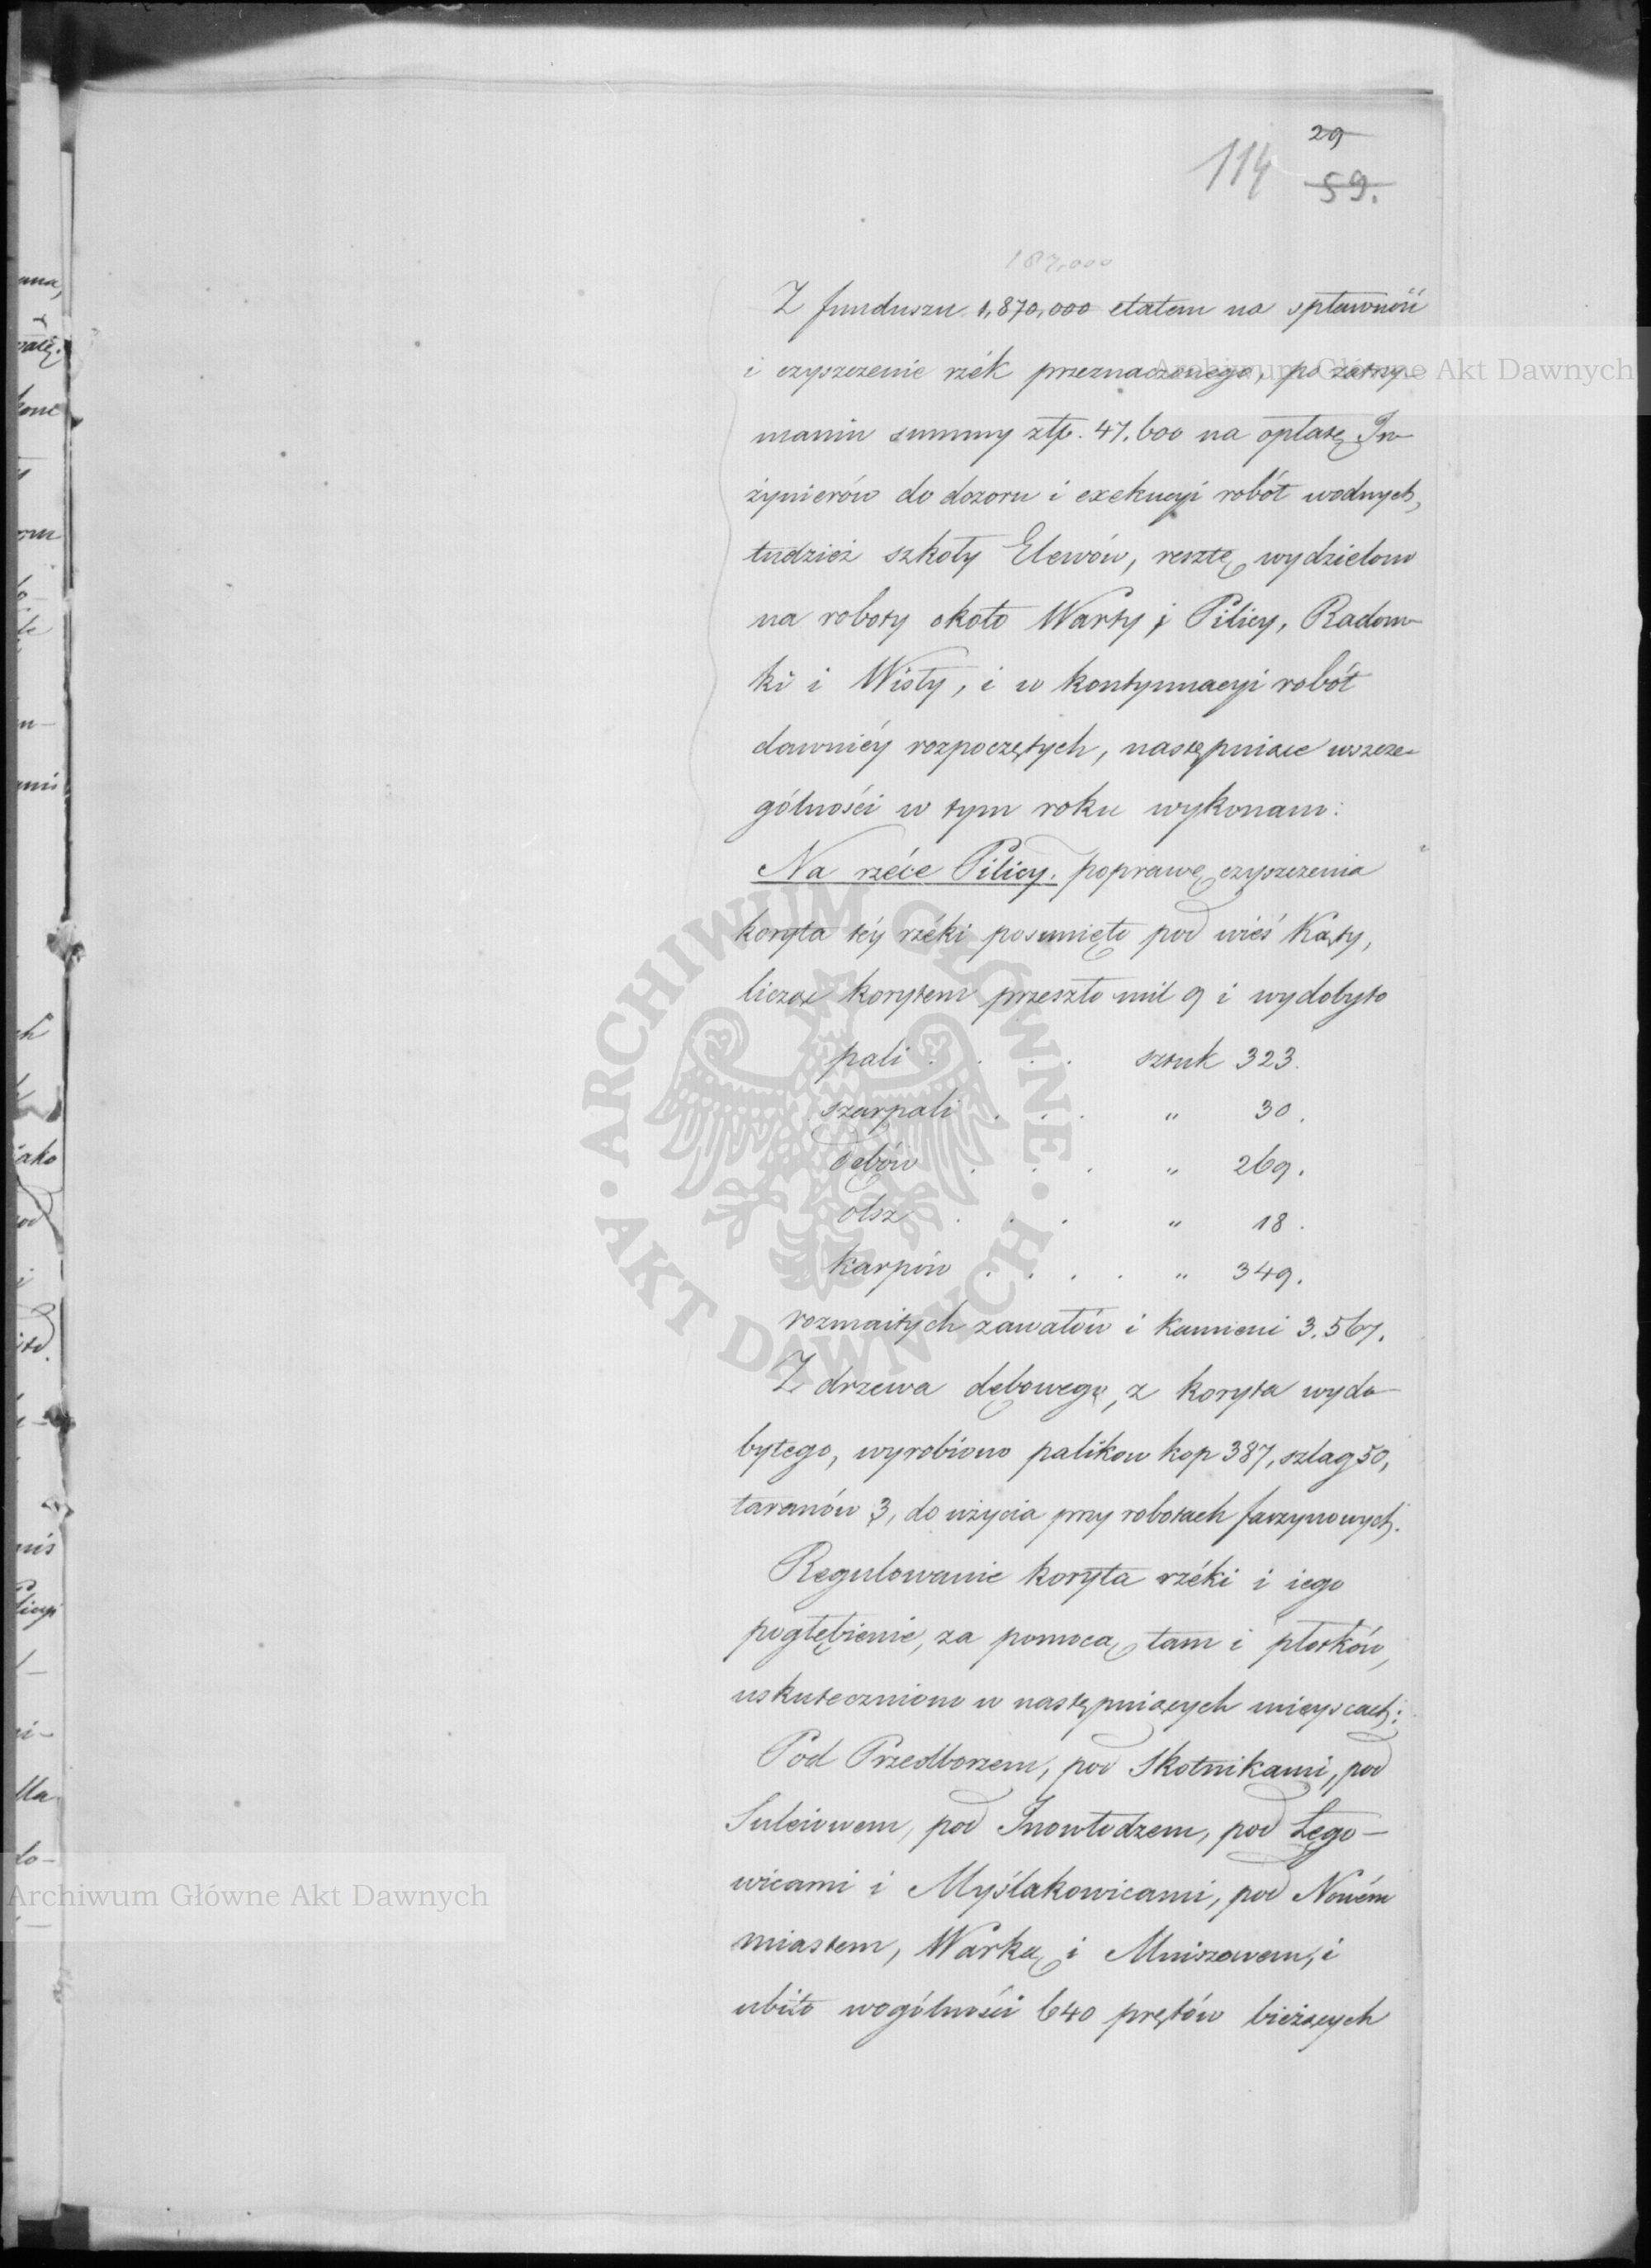 29
114 59.
187,000
Z funduszu 1,870,000 etatem na spławność
i czyszczenie rzék przeznaczonego, po zatrzy-
maniu summy złp. 47.600 na opłatę In-
żynierów do dozoru i exekucyi robót wodnych,
tudzież szkoły Elewów, resztę wydzielono
na roboty około Warty i Pilicy, Radom-
ki i Wisły, i w kontynuacyi robót
dawniéy rozpoczętych, następuiące wszcze-
gólności w tym roku wykonano:
Na rzéce Pilicy. poprawę czyszczenia
koryta téy rzéki posunięto pod wieś Kąty,
licząc korytem przeszło mil 9 i wydobyto
pali . . . . sztuk 323.
szarpali . . . " 30.
dębów . . . " 269.
olsz . . . " 18.
karpów . . . . " 349.
rozmaitych zawałów i kamieni 3.567.
Z drzewa dębowego, z koryta wydo-
bytego, wyrobiono palikow kop 387, szlag 50,
taranów 3, do użycia przy robotach faszynowych.
Regulowanie koryta rzéki i iego
pogłębienie, za pomocą tam i płotków,
uskuteczniono w następuiących mieyscach:
Pod Przedborzem, pod Skotnikami, pod
Suleiowem, pod Inowłodzem, pod Łęgo-
wicami i Myślakowicami, pod Nowém
miastem, Warką i Mniszewem, i
ubito wogólności 640 prętów bieżących
Archiwum Główne Akt Dawnych
ARCHIWUM GŁÓWNE AKT DAWNYCH
Archiwum Główne Akt Dawnych